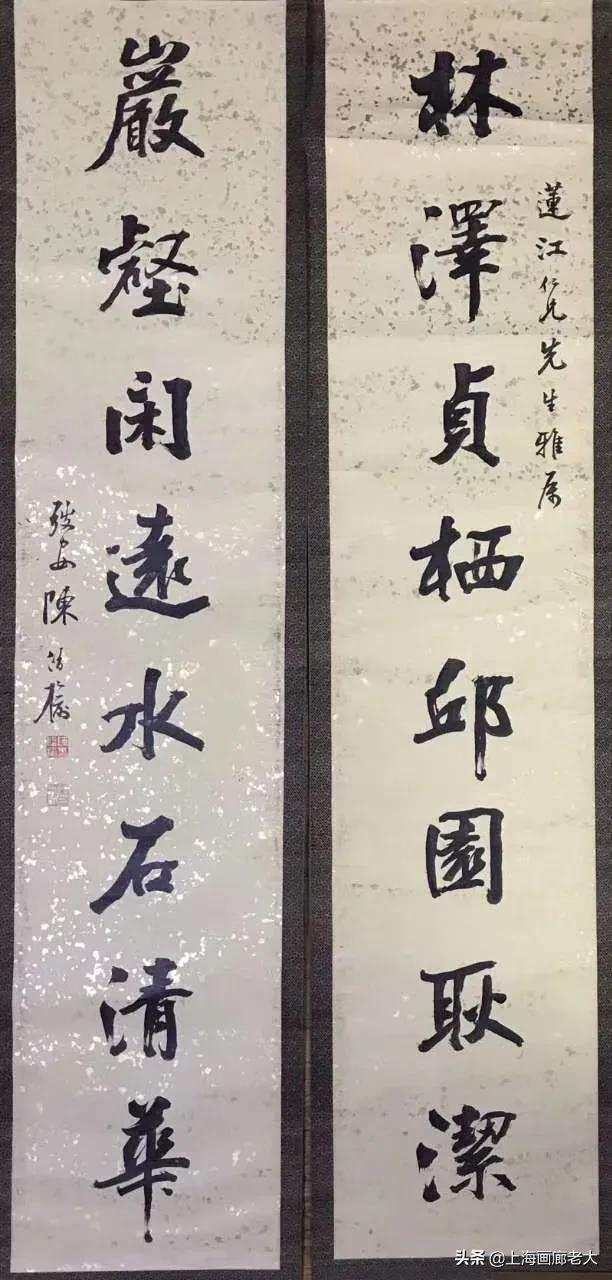 林澤貞栖邱園耿潔
蓮江仁兄先生雅屬
巖壑閑遠水石清華
陳
头条 @上海画廊老大